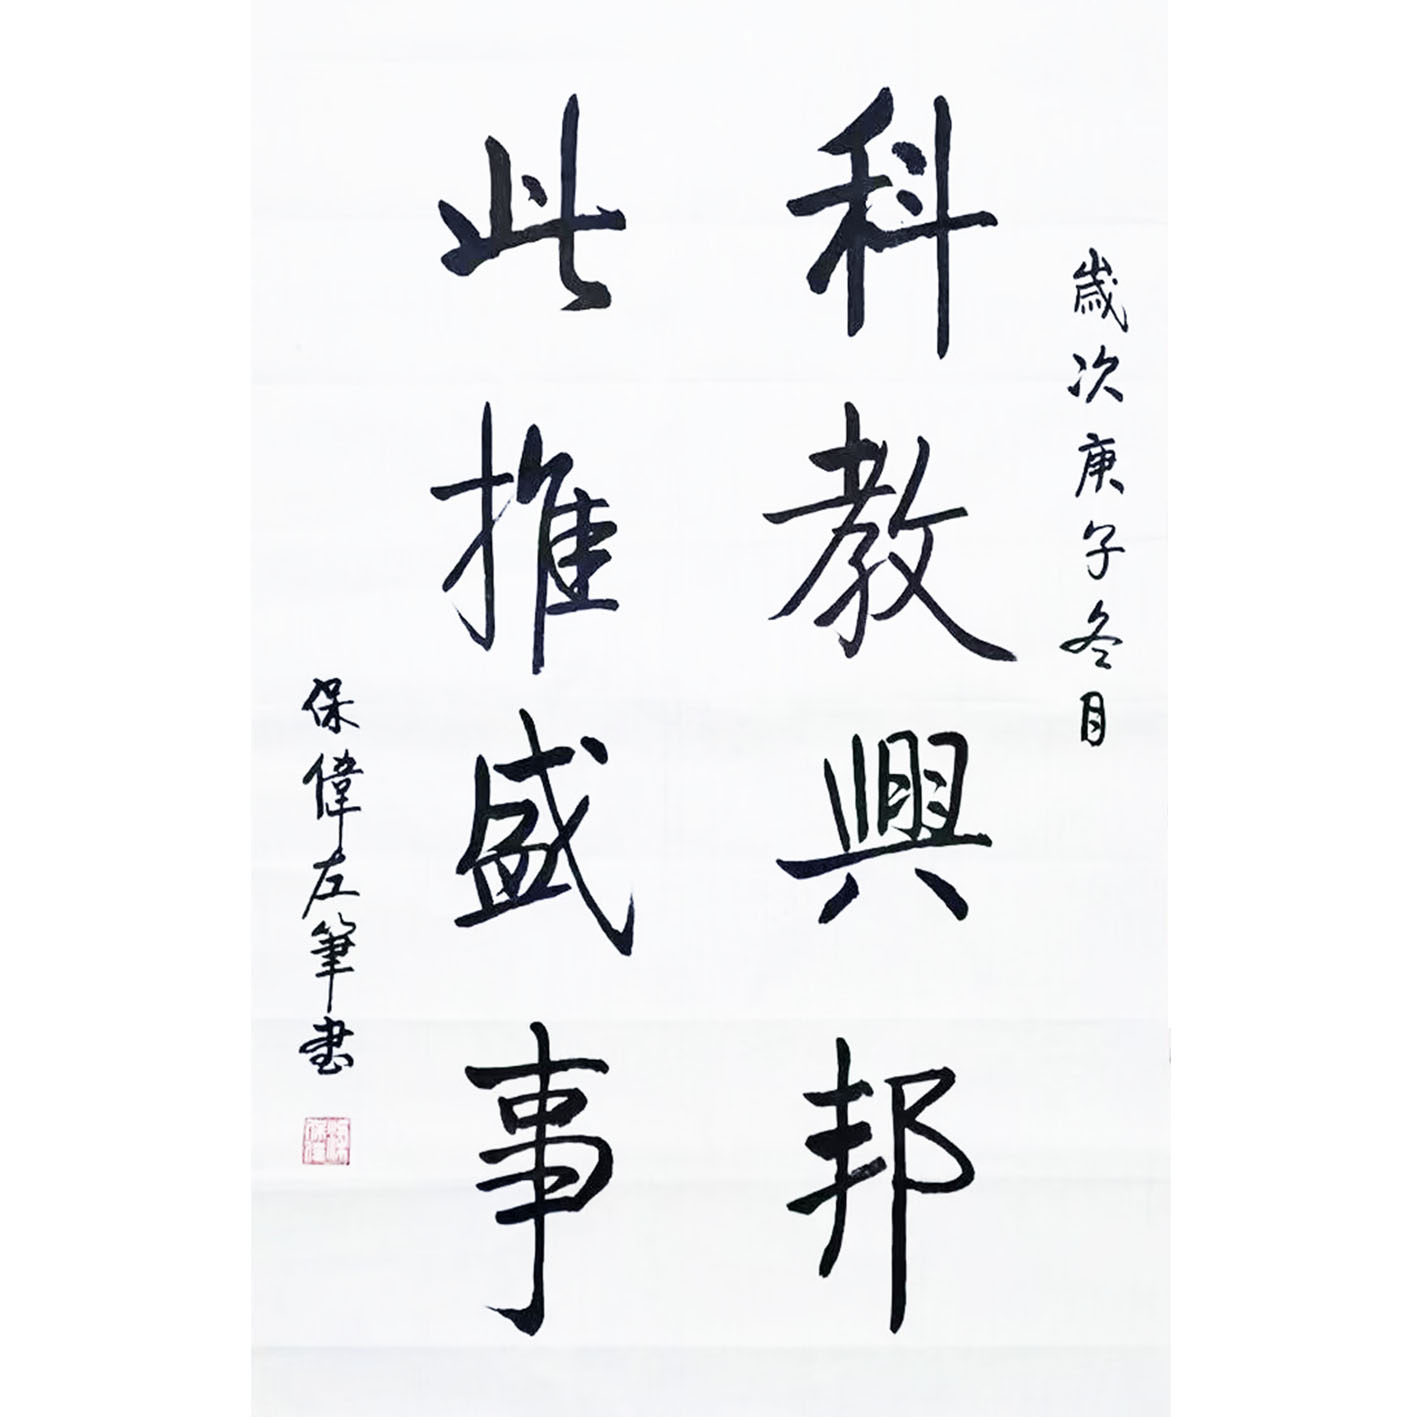 歲次庚子冬月
科教興邦
此推盛事
保偉左筆书